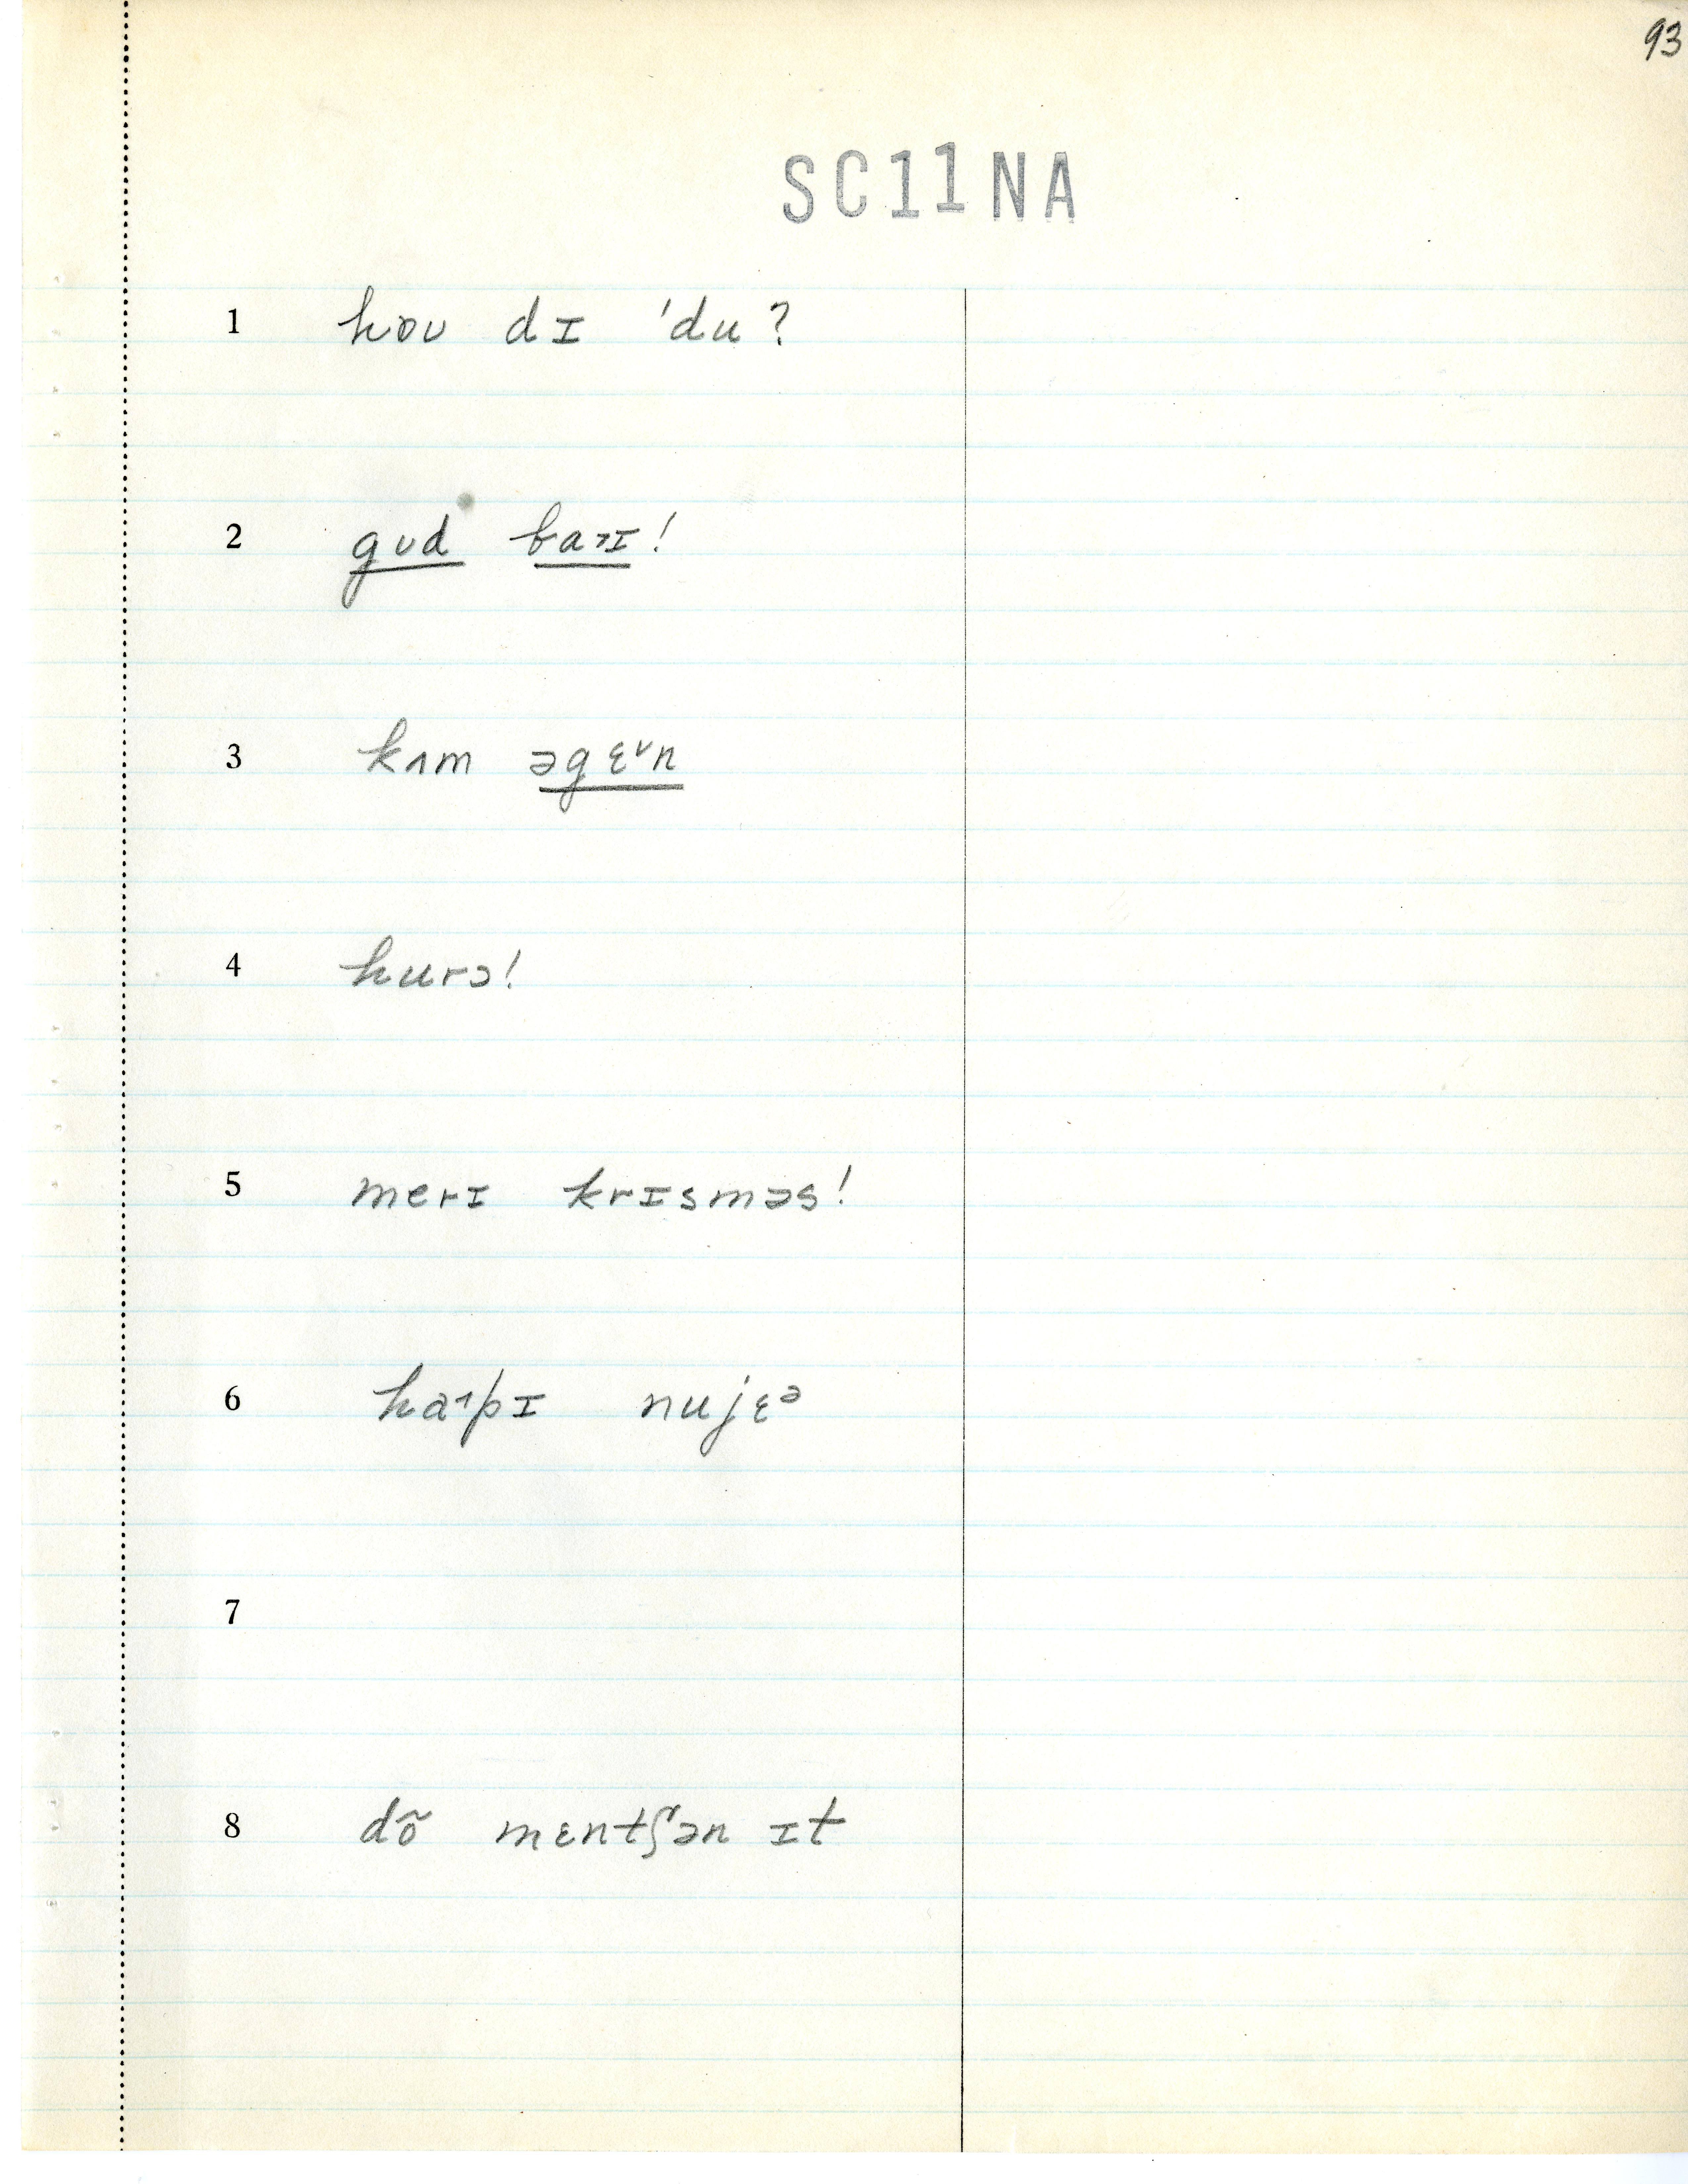 93
SC11NA
1 hɒʊ dɪ ˈdu?
2 gʊd baɪ!
3 kʌm əgɛ˅n
4 hurɔ!
5 merɪ krɪsməs!
6 ha˄pɪ nujɛᵊ
7
8 dõ mɛntʃən ɪt